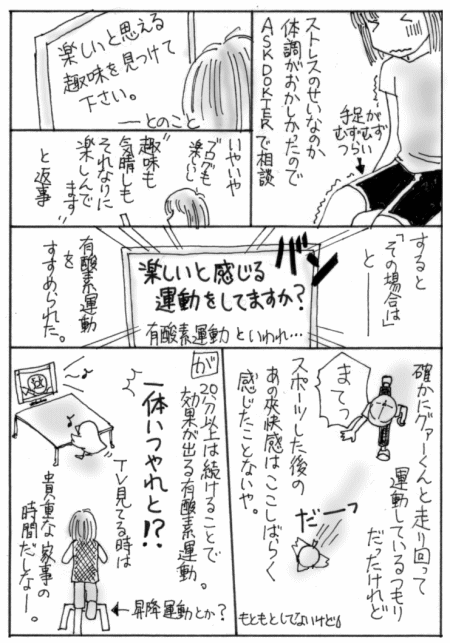 ストレスのせいなのか
体調がおかしかったので
ASKDOKTERで相談
手足がずず
むずむずい
つら
楽しいと思える
趣味を見つけて
下さい。
――とのこと
いやいや
ブログも
楽しい
趣味も
気晴しも
それなりに
楽しんで
ます
と返事
すると
「その場合は」
と――
ガン
楽しいと感じる
運動をしてますか?
有酸素運動といわれ…
有酸素運動
を
すすめられた。
確かにクァーくんと走り回って
運動しているつもり
だったけれど
まてっ
だーっ
スポーツした後の
あの爽快感はここしばらく
感じたことないや。
もともとしてないけど
が
20分以上は続けることで
効果が出る有酸素運動。
一体いつやれと!?
TV見てる時は
貴重な家事の
時間だしなー。
←昇降運動とか?